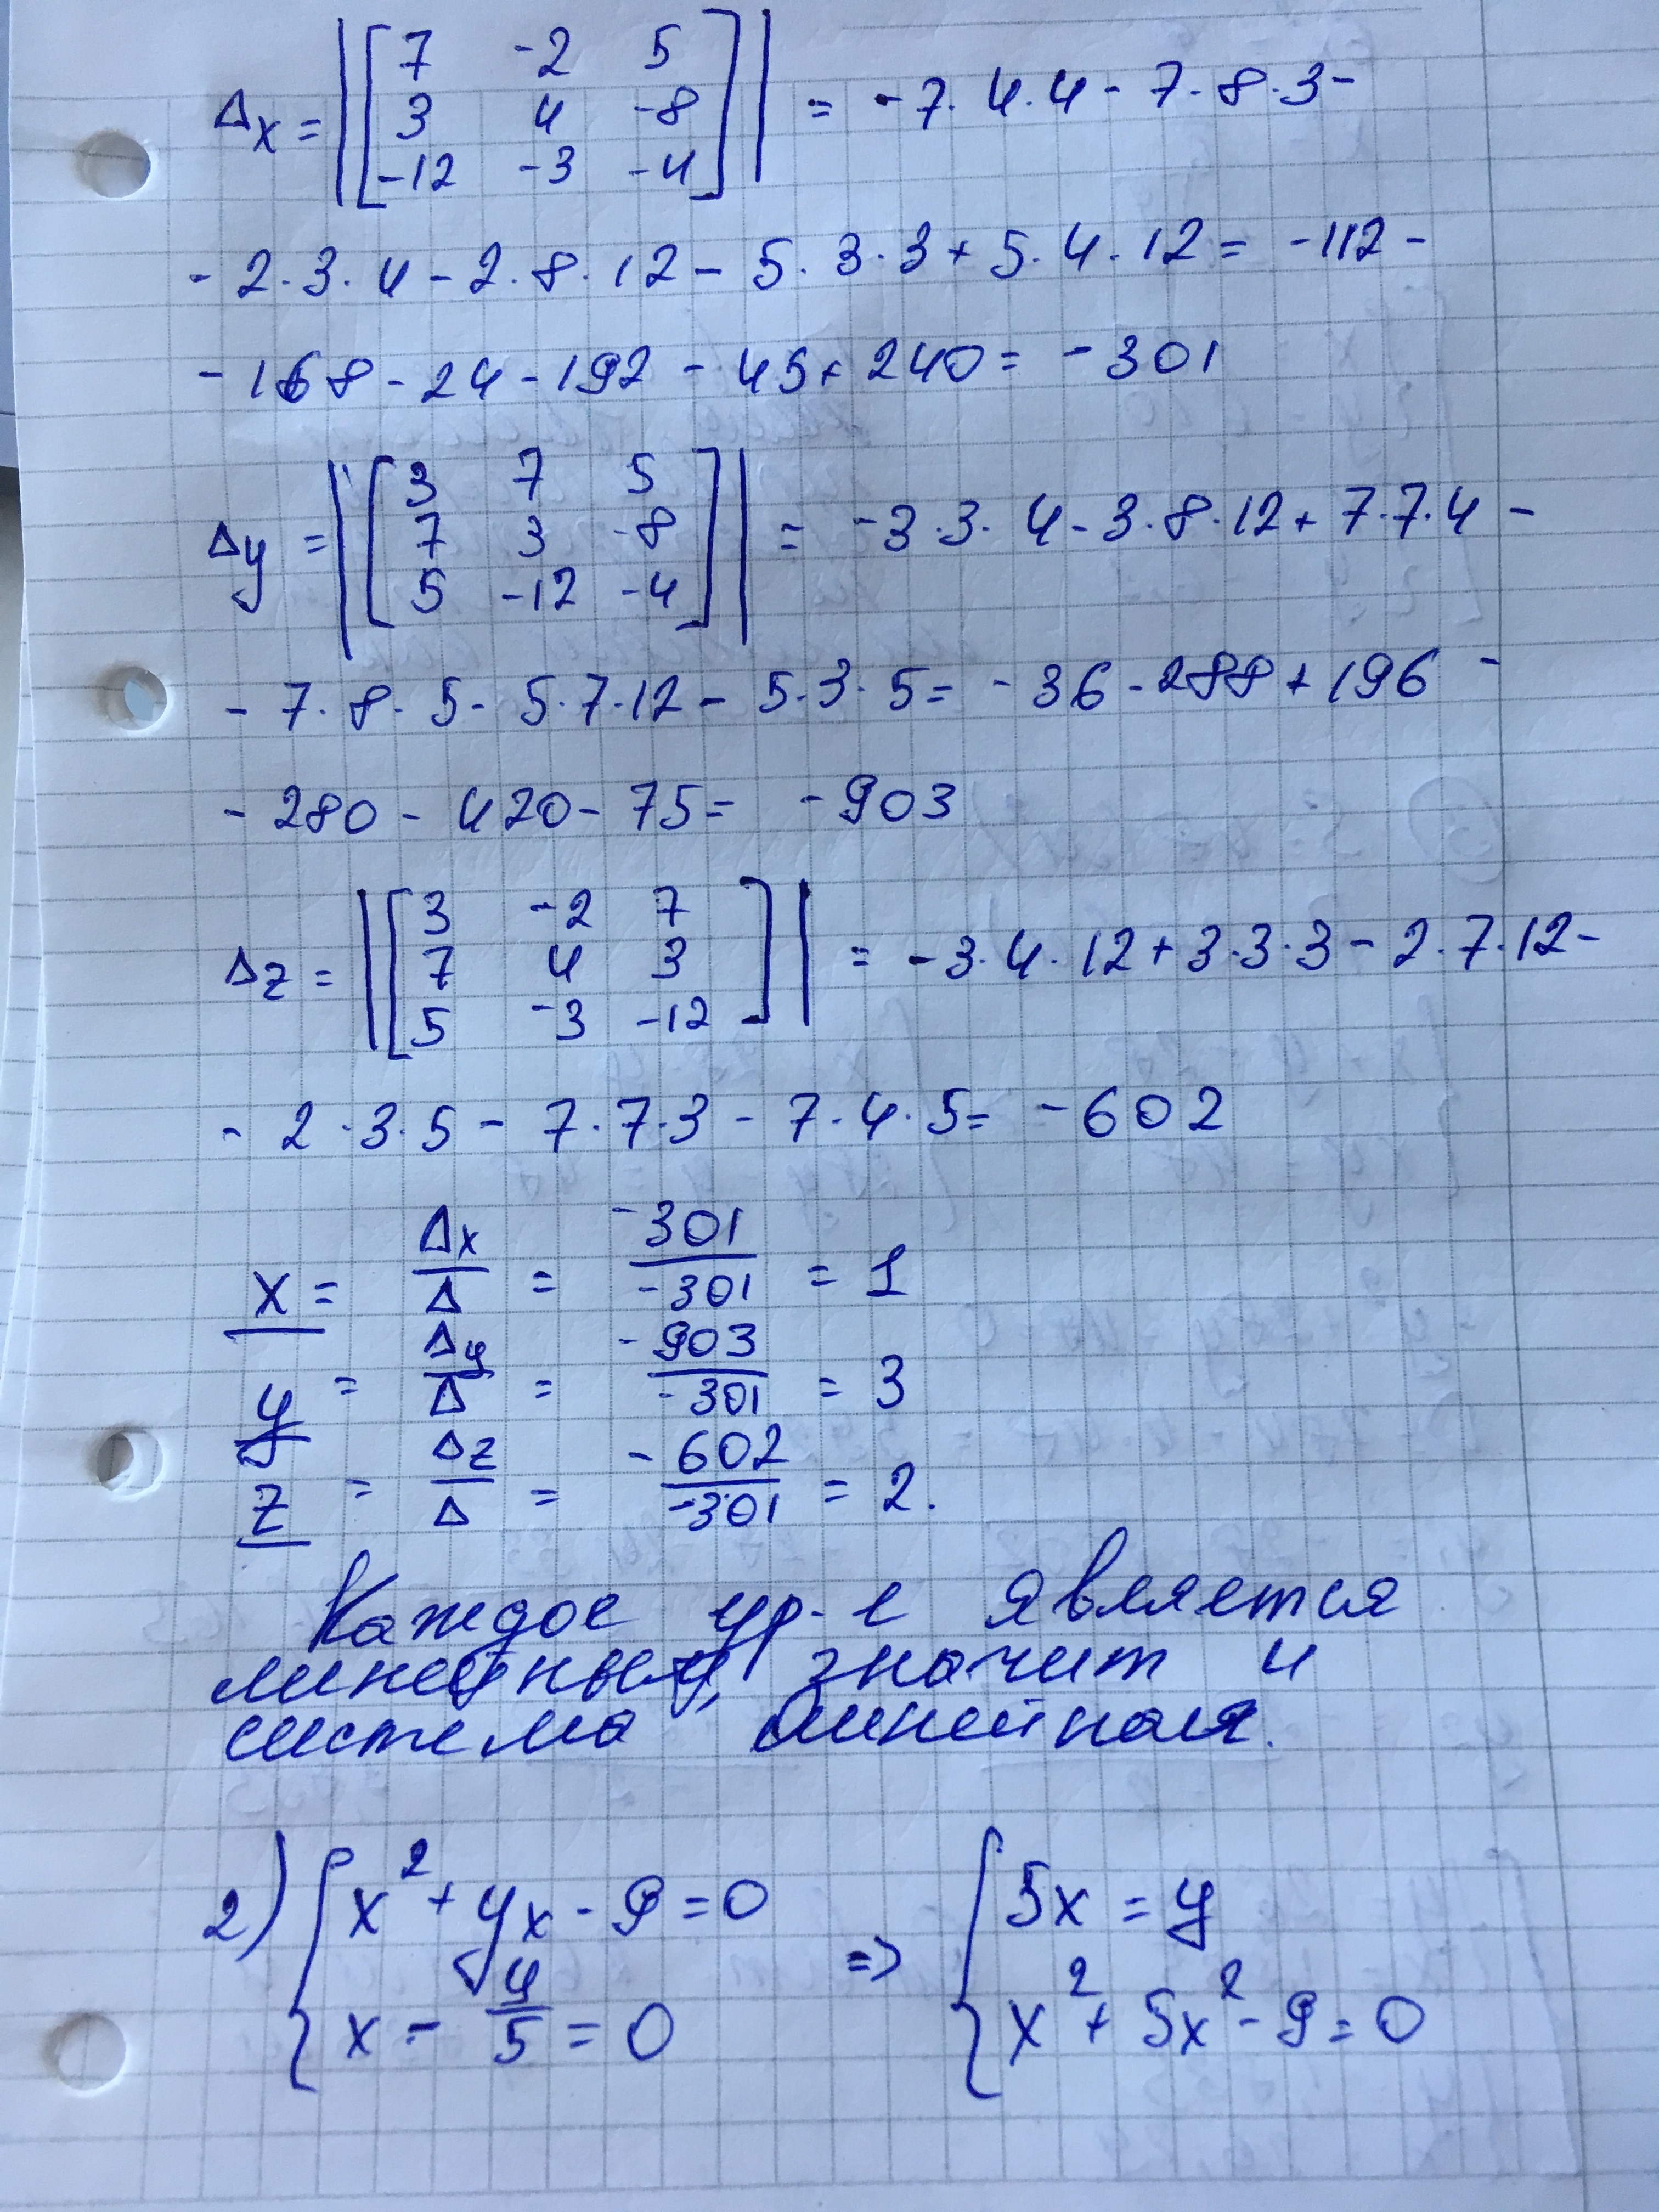 Δx = |[7 -2 5
3 4 -8
-12 -3 -4]| = -7·4·4 - 7·8·3 -
- 2·3·4 - 2·8·12 - 5·3·3 + 5·4·12 = -112 -
- 168 - 24 - 192 - 45 + 240 = -301
Δy = |[3 7 5
7 3 -8
5 -12 -4]| = -3·3·4 - 3·8·12 + 7·7·4 -
- 7·8·5 - 5·7·12 - 5·3·5 = -36 - 288 + 196 -
- 280 - 420 - 75 = -903
Δz = |[3 -2 7
7 4 3
5 -3 -12]| = -3·4·12 + 3·3·3 - 2·7·12 -
- 2·3·5 - 7·7·3 - 7·4·5 = -602
x = Δx/Δ = -301/-301 = 1
y = Δy/Δ = -903/-301 = 3
z = Δz/Δ = -602/-301 = 2.
Каждое ур-е является
линейным, значит и
система линейная.
2) { x² + yx - 9 = 0 => { 5x = y
x - y/5 = 0 x² + 5x² - 9 = 0